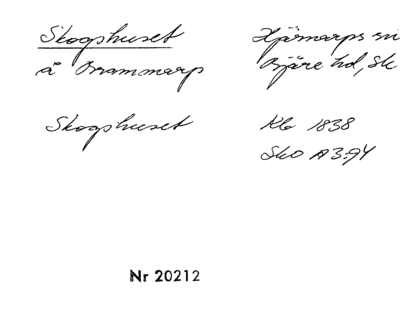 Skogshuset
å Brammarp
Hjärnarps sn
Bjäre hd, Sk
Skogshuset
Kb 1838
Sko A3:94
Nr 20212